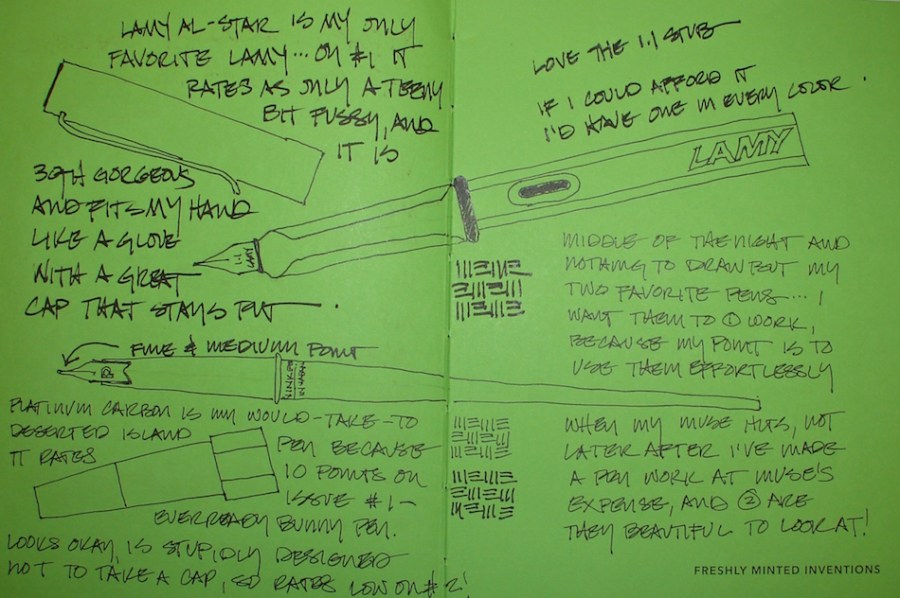 LAMY AL-STAR IS MY ONLY
FAVORITE LAMY... ON #1 IT
RATES AS ONLY A TEENY
BIT FUSSY, AND
IT IS
BOTH GORGEOUS
AND FITS MY HAND
LIKE A GLOVE
WITH A GREAT
CAP THAT STAYS PUT.
LOVE THE 1.1 STUB
IF I COULD AFFORD IT
I'D HAVE ONE IN EVERY COLOR.
LAMY
1.1
LAMY
MIDDLE OF THE NIGHT AND
NOTHING TO DRAW BUT MY
TWO FAVORITE PENS... I
WANT THEM TO ① WORK,
BECAUSE MY POINT IS TO
USE THEM EFFORTLESSLY
WHEN MY MUSE HITS, NOT
LATER AFTER I'VE MADE
A PEN WORK AT MUSE'S
EXPENSE, AND ② ARE
THEY BEAUTIFUL TO LOOK AT!
FINE & MEDIUM POINT
PLATINUM CARBON IS MY WOULD-TAKE-TO
DESERTED ISLAND
PEN BECAUSE
IT RATES
10 POINTS ON
ISSUE #1-
EVERREADY BUNNY PEN.
LOOKS OKAY, IS STUPIDLY DESIGNED
NOT TO TAKE A CAP, SO RATES LOW ON #2!
FRESHLY MINTED INVENTIONS